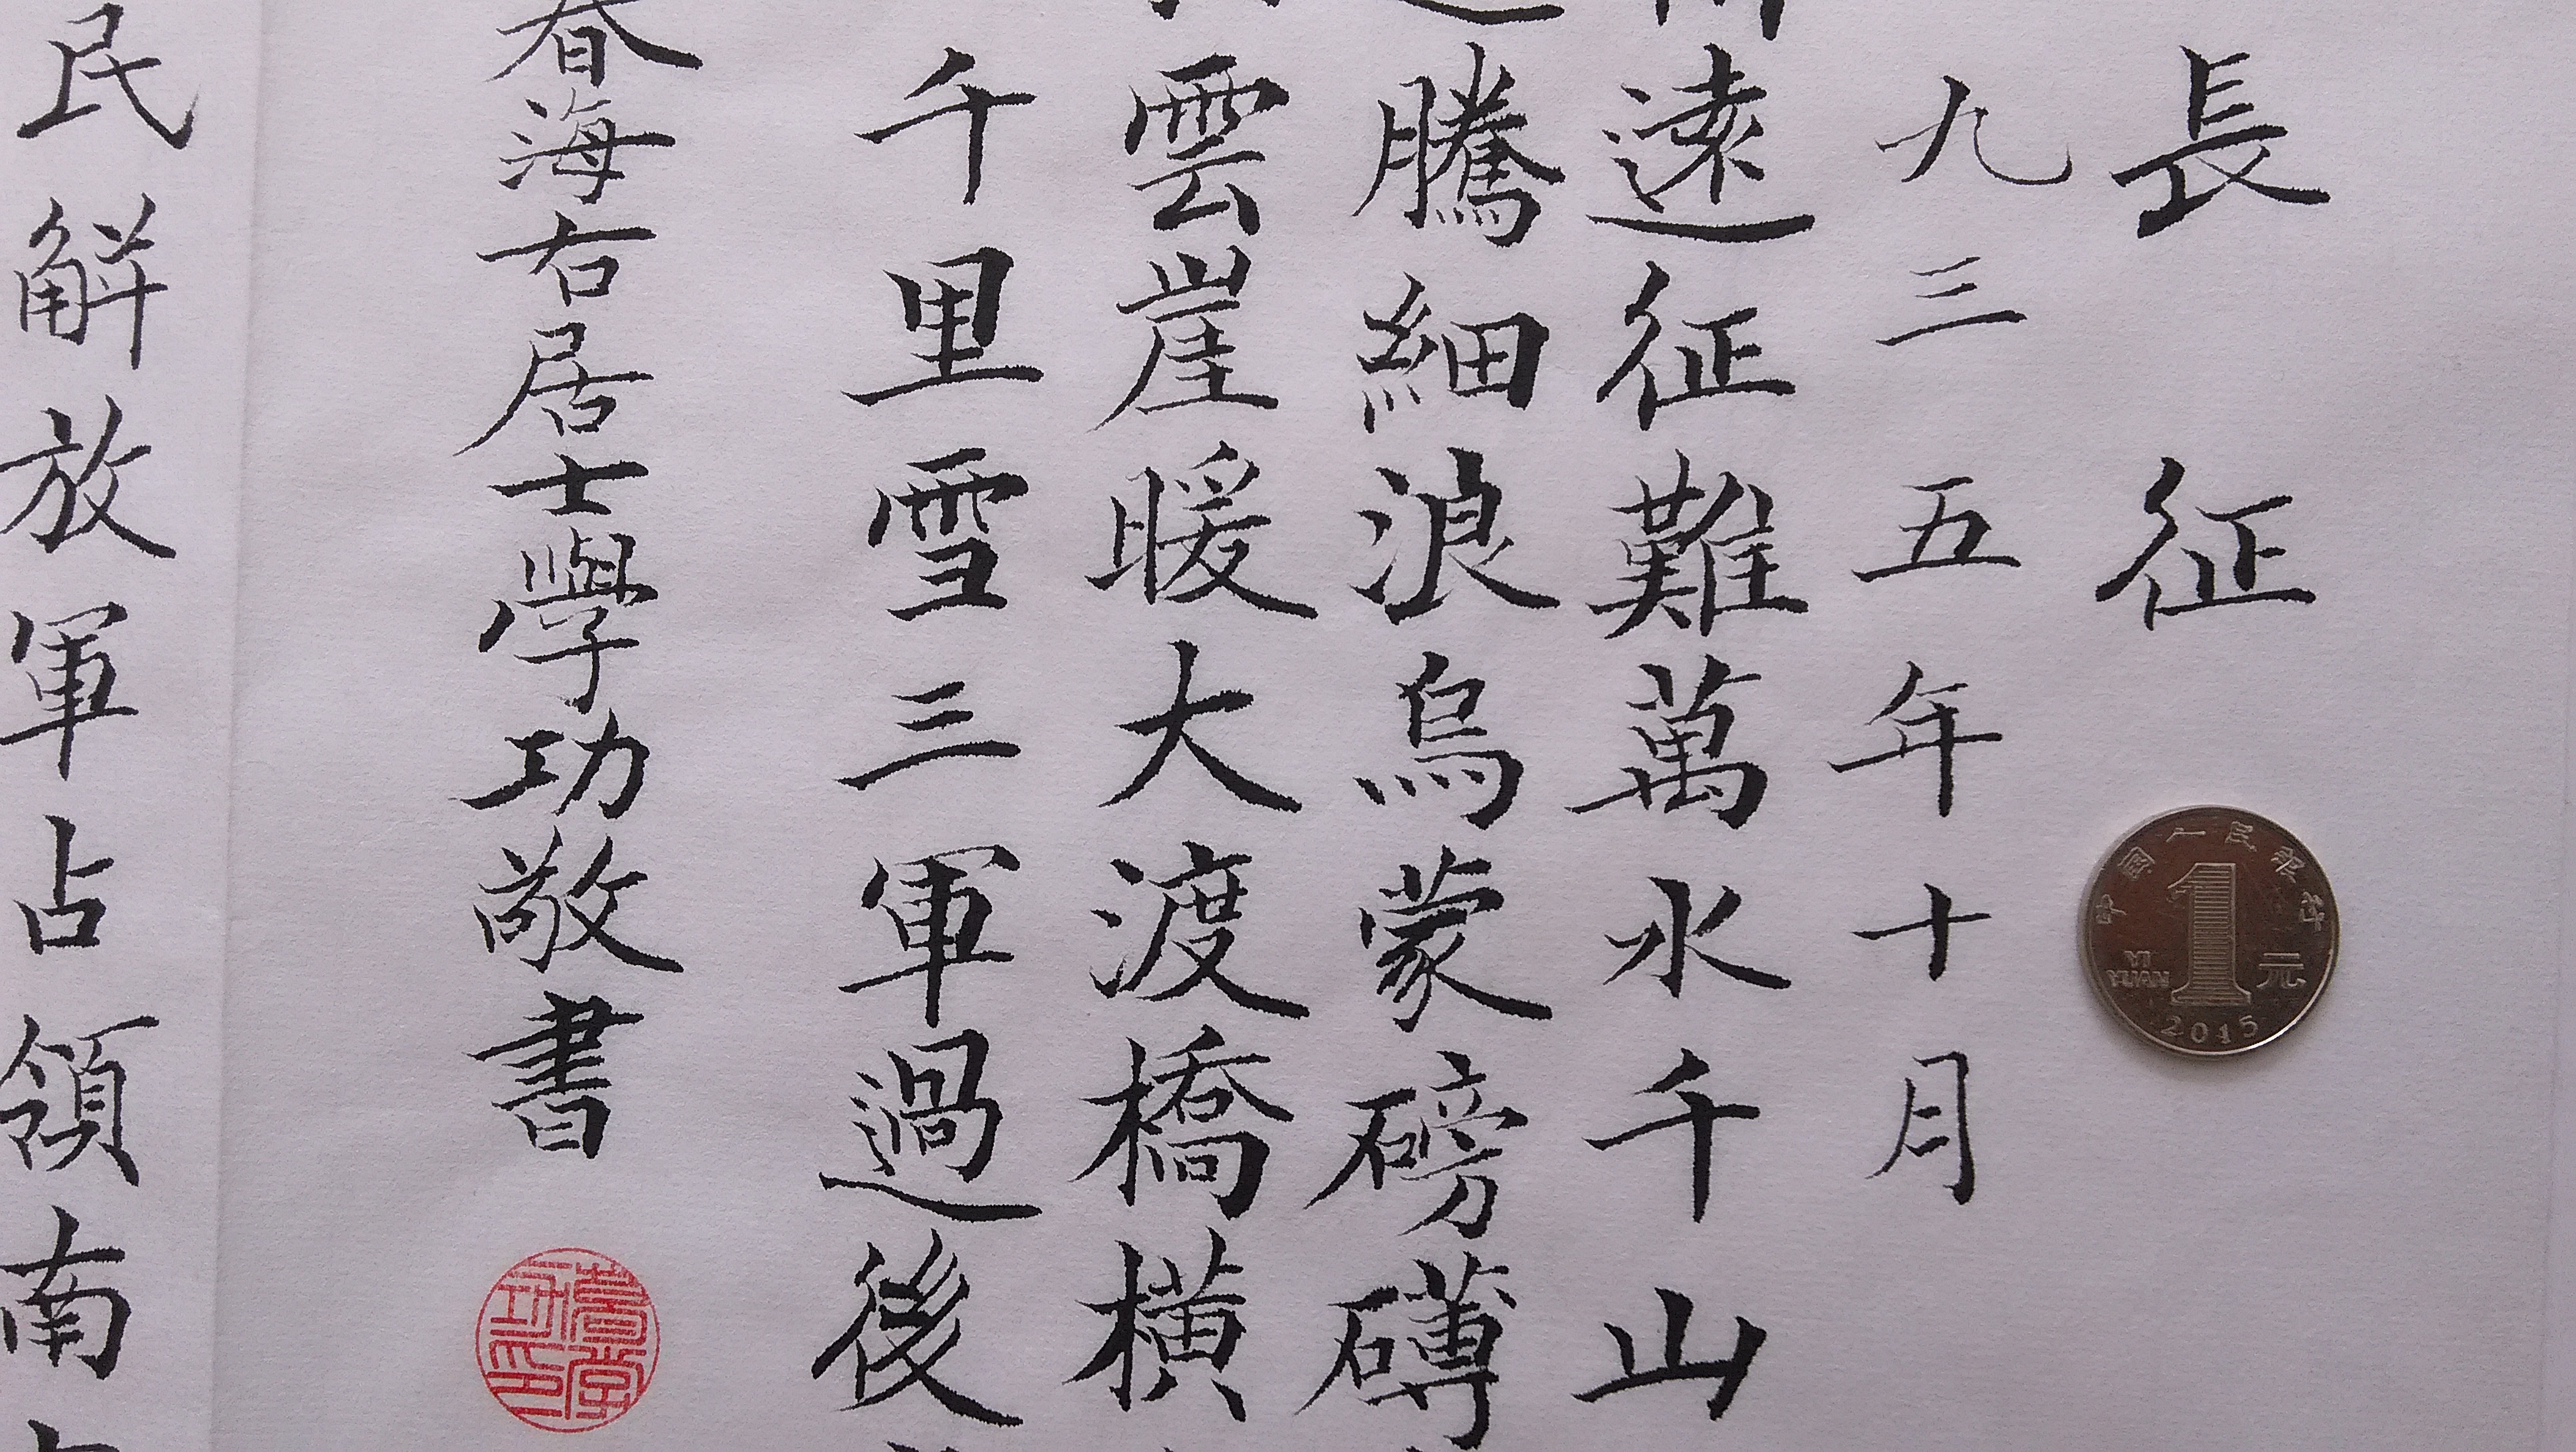 長征
九三五年十月
遠征難萬水千山
騰細浪烏蒙磅礴
雲崖暖大渡橋橫
千里雪三軍過後
春海右居士學功敬書
民解放軍占領南
中國人民銀行
1
元
YI YUAN
2015